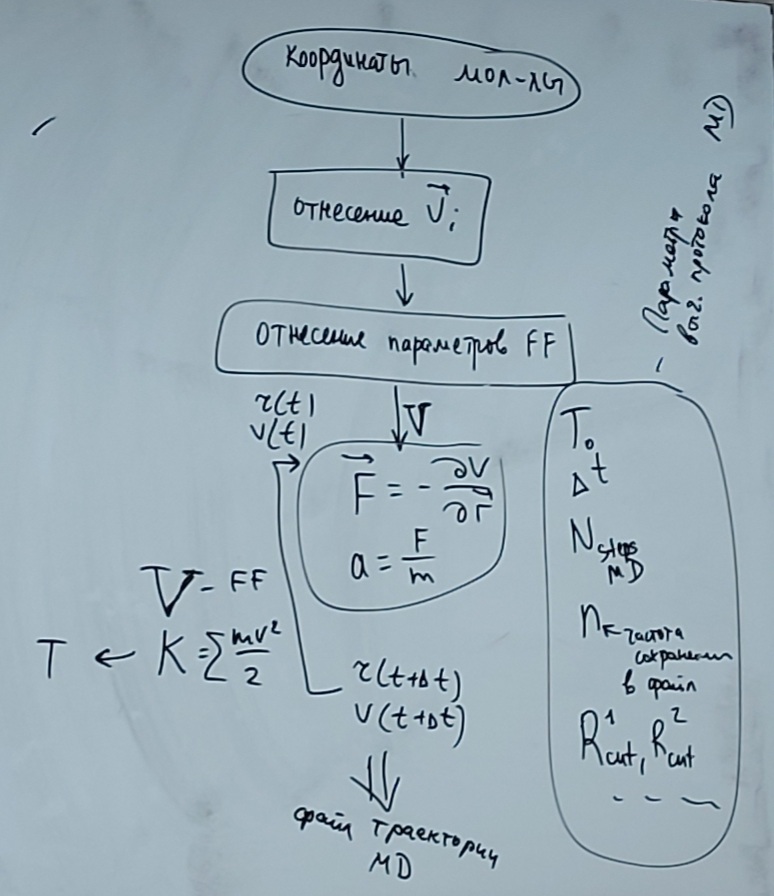 координаты мол-лы
отнесение V⃗i
отнесение параметров FF
r(t)
V(t)
V
F⃗ = - ∂V/∂r⃗
a = F/m
V - FF
T ← K = Σ mv²/2
r(t+Δt)
V(t+Δt)
файл траектории
MD
- Параметры
выч. протокола MD
T₀
Δt
N steps
MD
n ← частота
сохранения
в файл
R¹cut, R²cut
- - -